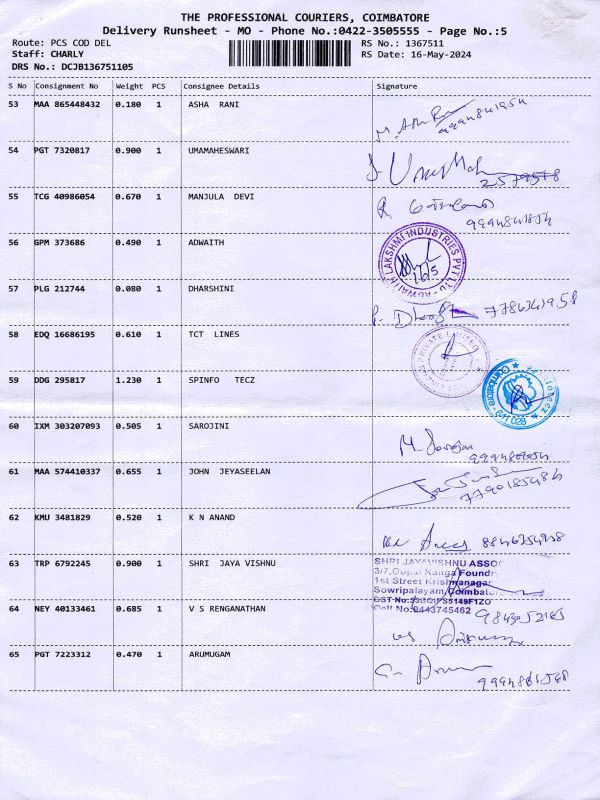 THE PROFESSIONAL COURIERS, COIMBATORE
Delivery Runsheet - MO - Phone No.:0422-3505555 - Page No.:5
Route: PCS COD DEL
RS No.: 1367511
Staff: CHARLY
RS Date: 16-May-2024
DRS No.: DCJB136751105
S No Consignment No Weight PCS Consignee Details Signature
53 MAA 865448432 0.180 1 ASHA RANI
54 PGT 7320817 0.900 1 UMAMAHESWARI
55 TCG 40986054 0.670 1 MANJULA DEVI
56 GPM 373686 0.490 1 ADWAITH
ADWAITH LAKSHMI INDUSTRIES PVT LTD
16/5
57 PLG 212744 0.080 1 DHARSHINI
58 EDQ 16686195 0.610 1 TCT LINES
PRIVATE LIMITED
59 DDG 295817 1.230 1 SPINFO TECZ
Coimbatore 641 028
60 IXM 303207093 0.505 1 SAROJINI
61 MAA 574410337 0.655 1 JOHN JEYASEELAN
62 KMU 3481829 0.520 1 K N ANAND
63 TRP 6792245 0.900 1 SHRI JAYA VISHNU
SHRI JAYAVISHNU ASSO
3/7, Gopal Ranga Foundr
1st Street Krishnanagar
Sowripalayam, Coimbato
Cell No:0443745462
64 NEY 40133461 0.685 1 V S RENGANATHAN
65 PGT 7223312 0.470 1 ARUMUGAM